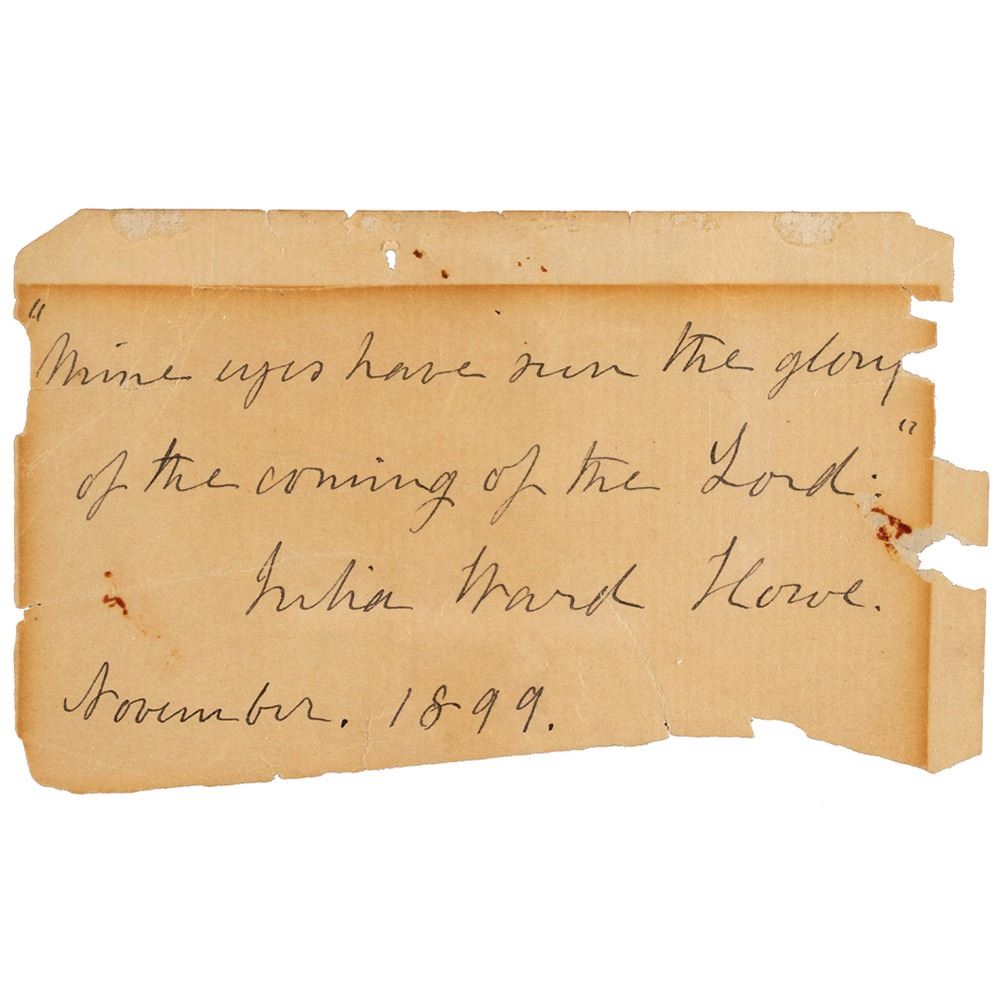 "Mine eyes have seen the glory
of the coming of the Lord:"
Julia Ward Howe.
November. 1899.